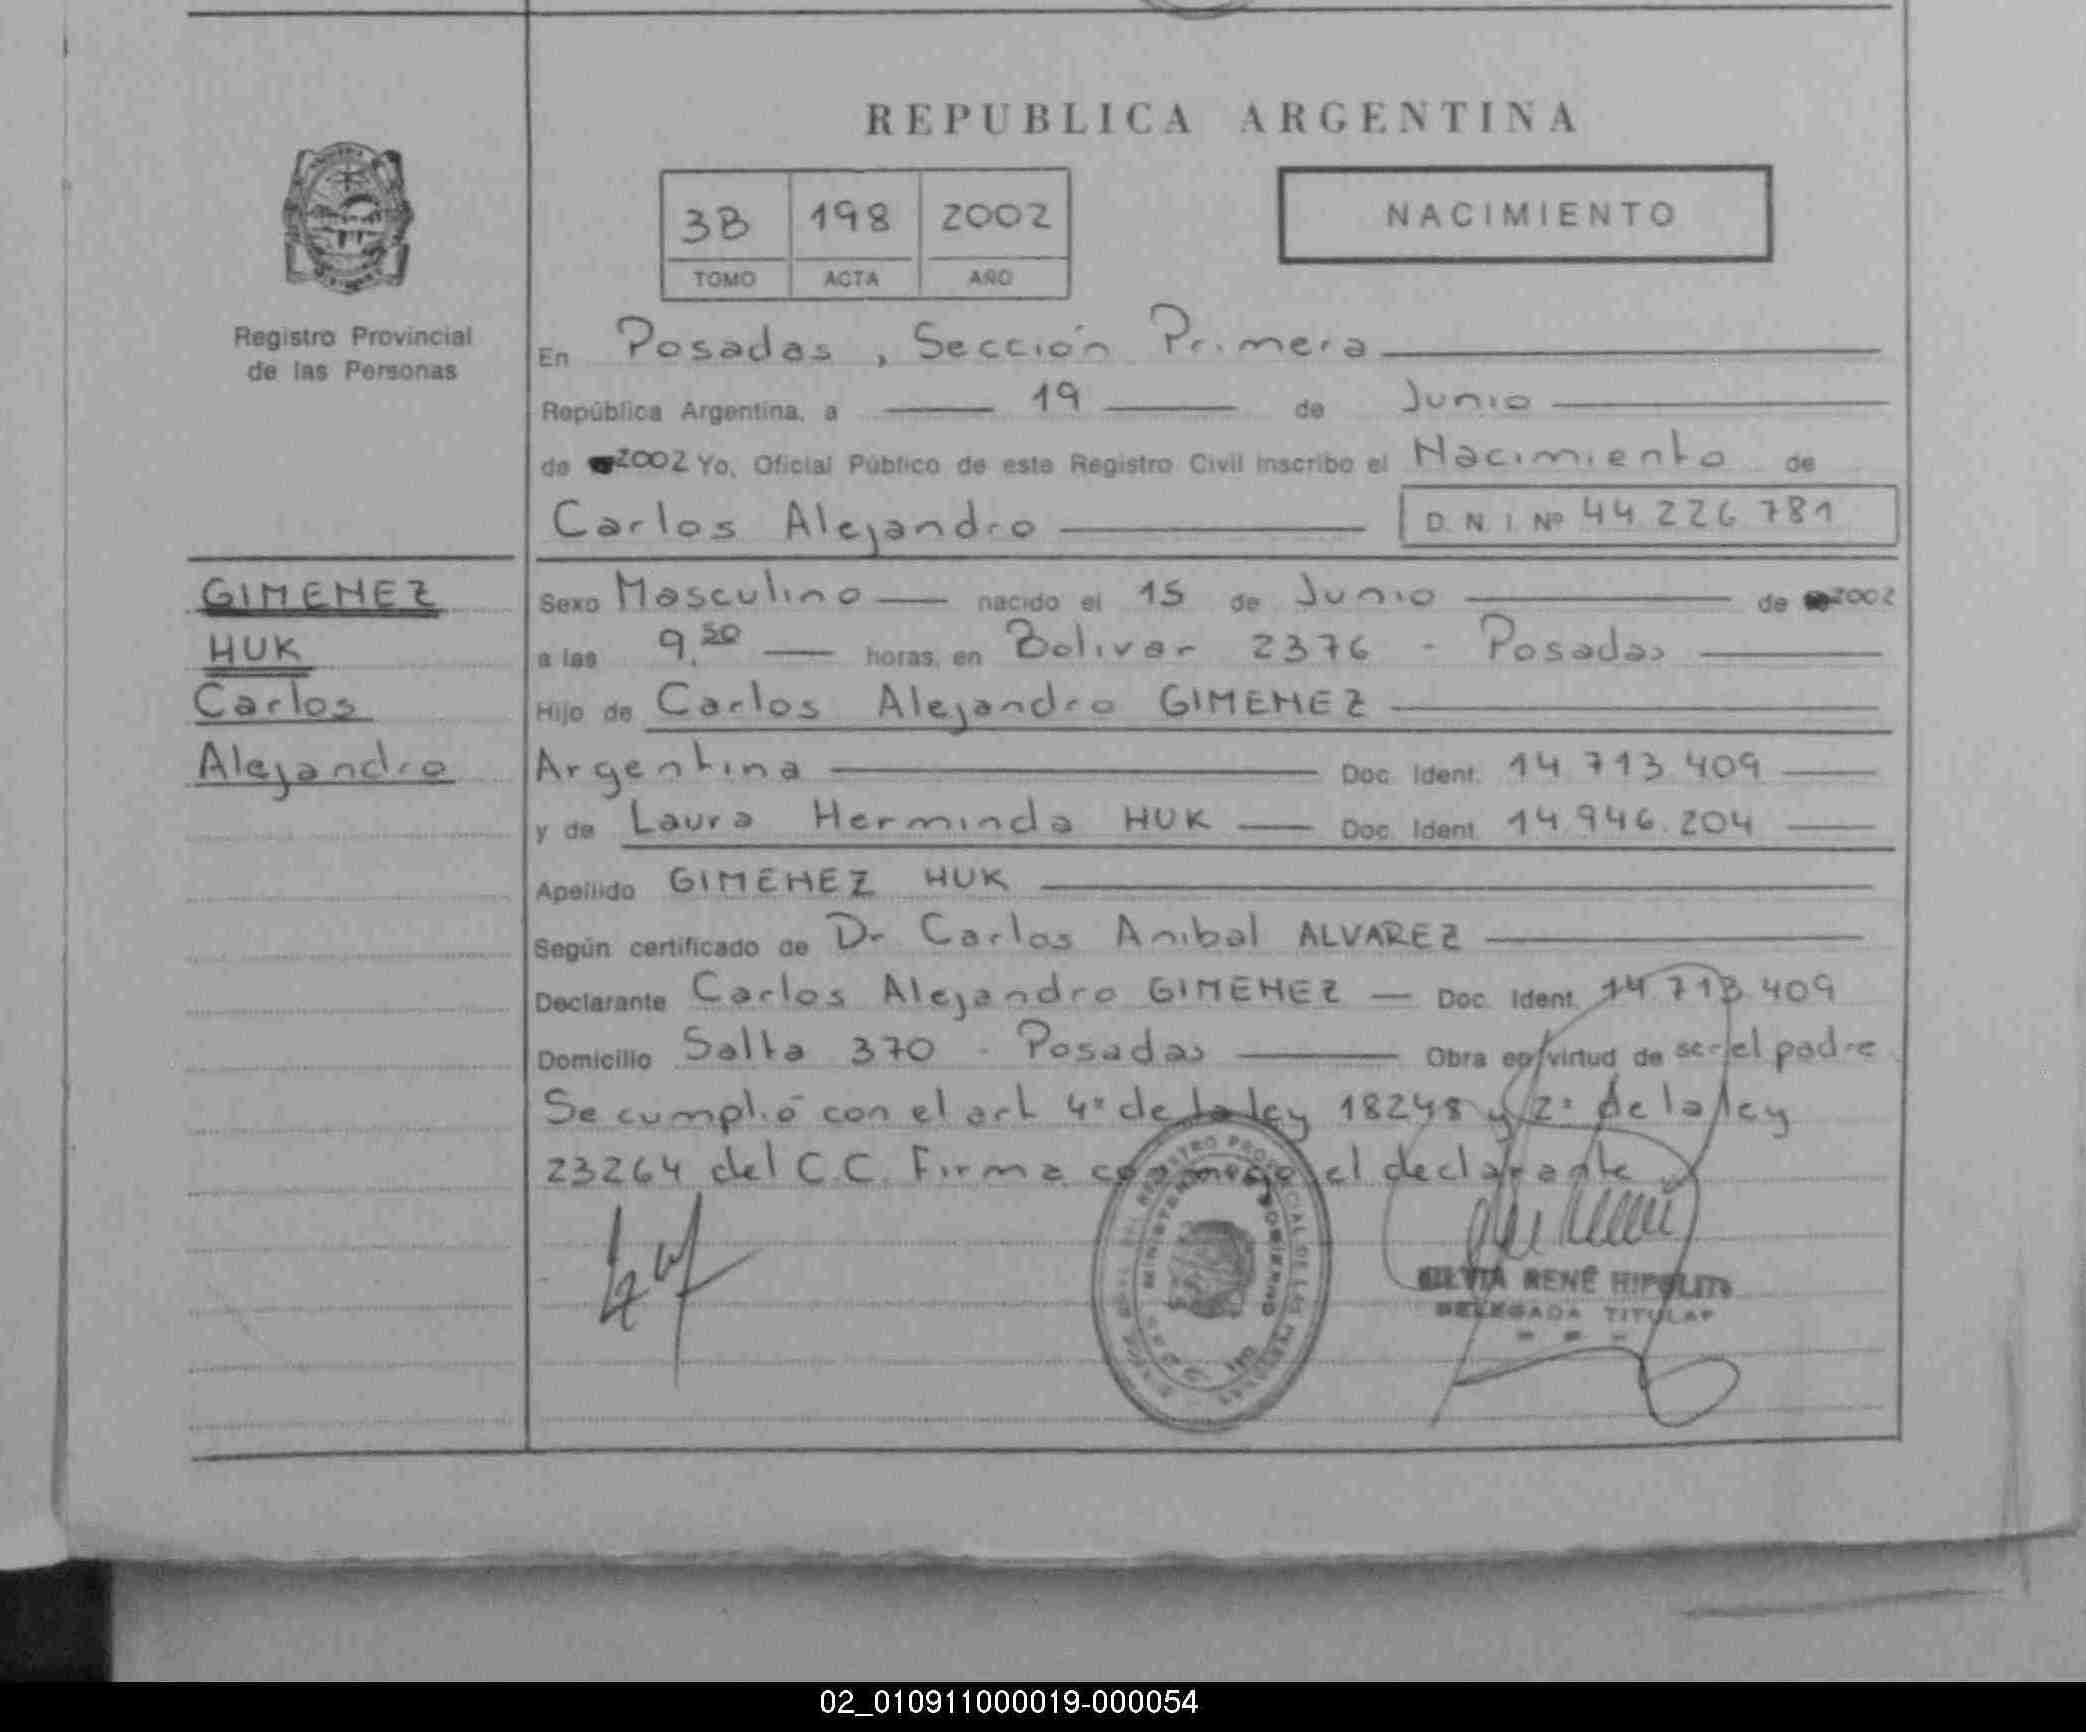 REPUBLICA ARGENTINA
3B 198 2002
TOMO ACTA AÑO
NACIMIENTO
Registro Provincial
de las Personas
En Posadas, Sección Primera
República Argentina, a 19 de Junio
de 2002 Yo, Oficial Público de este Registro Civil inscribo el Nacimiento de
Carlos Alejandro D. N. I. Nº 44 226 781
GIMENEZ
HUK
Carlos
Alejandro
Sexo Masculino nacido el 15 de Junio de 2002
a las 9,30 horas, en Bolivar 2376 - Posadas
Hijo de Carlos Alejandro GIMENEZ
Argentina Doc. Ident. 14 713 409
y de Laura Herminda HUK Doc. Ident. 14.946.204
Apellido GIMENEZ HUK
Según certificado de Dr Carlos Anibal ALVAREZ
Declarante Carlos Alejandro GIMENEZ Doc. Ident. 14 713 409
Domicilio Salta 370 - Posadas Obra en virtud de ser el padre
Se cumplió con el art 4º de la ley 18248 y 2º de la ley
23264 del C.C. Firma conmigo el declarante
SILVIA RENÉ HIPOLITO
DELEGADA TITULAR
02_010911000019-000054